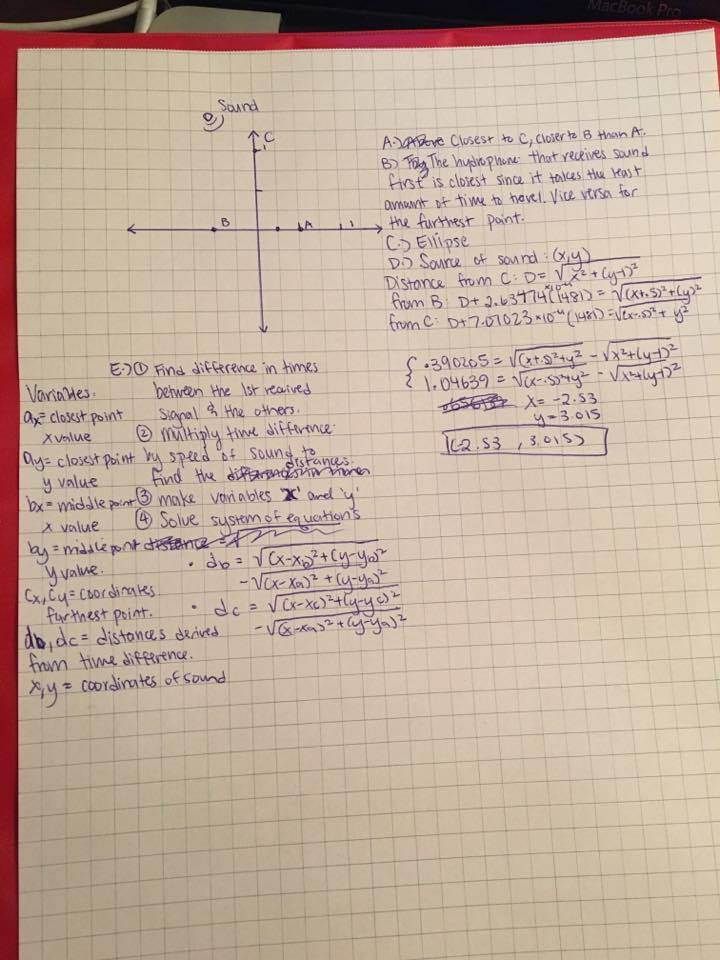 MacBook Pro
Sound
C
1
B
A
1
A.) Closest to C, closer to B than A.
B.) The hydrophone that receives sound
first is closest since it takes the least
amount of time to travel. Vice versa for
the furthest point.
C.) Ellipse
D.) Source of sound: (x,y)
Distance from C: D = √x² + (y-1)²
from B: D + 2.63474×10⁻⁴(1481) = √(x+.5)² + (y)²
from C: D + 7.07023×10⁻⁴(1481) = √(x-.5)² + y²
{ .390205 = √(x+.5)² + y² - √x² + (y-1)²
{ 1.04639 = √(x-.5)² + y² - √x² + (y-1)²
x = -2.53
y = 3.015
(-2.53, 3.015)
E.) ① Find difference in times
between the 1st received
signal & the others.
② Multiply time difference
by speed of sound to
find the distances.
③ make variables 'x' and 'y'
④ Solve system of equations
• db = √(x-xb)² + (y-yb)²
- √(x-xa)² + (y-ya)²
• dc = √(x-xc)² + (y-yc)²
- √(x-xa)² + (y-ya)²
Variables.
ax = closest point
x value
ay = closest point
y value
bx = middle point
x value
by = middle point
y value.
Cx, Cy = coordinates
furthest point.
db, dc = distances derived
from time difference.
x, y = coordinates of sound